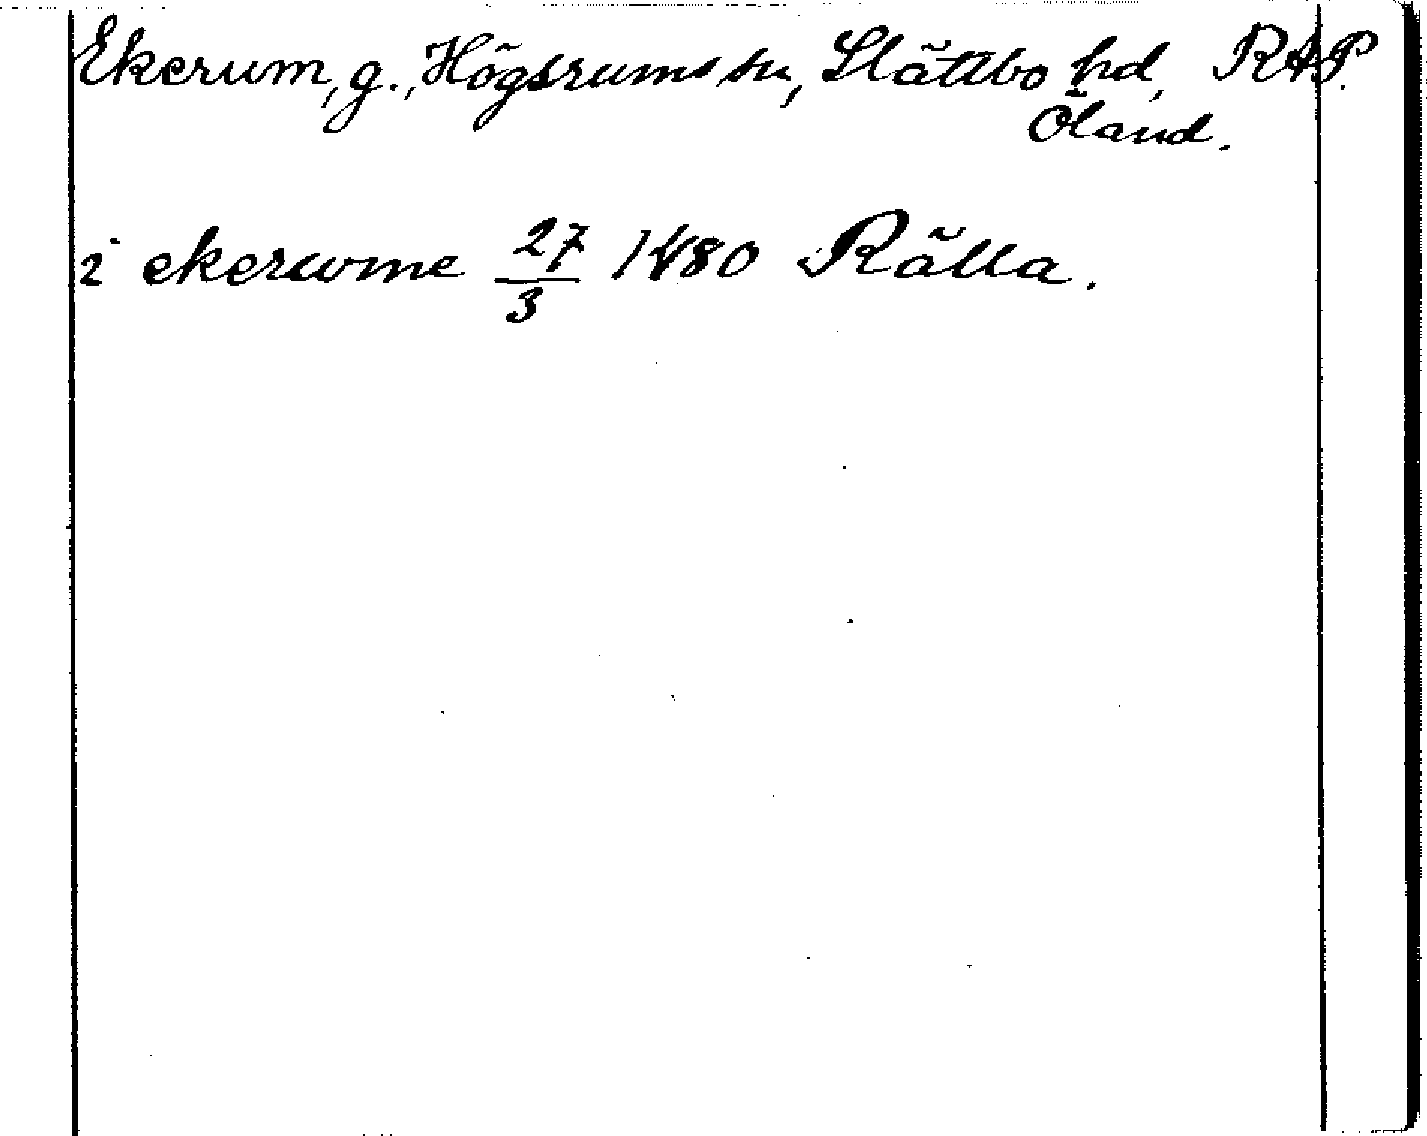 Ekerum, g., Högsrums sn, Slättbo hd, RAP.
Öland.
i ekerwme 27/3 1480 Rälla.